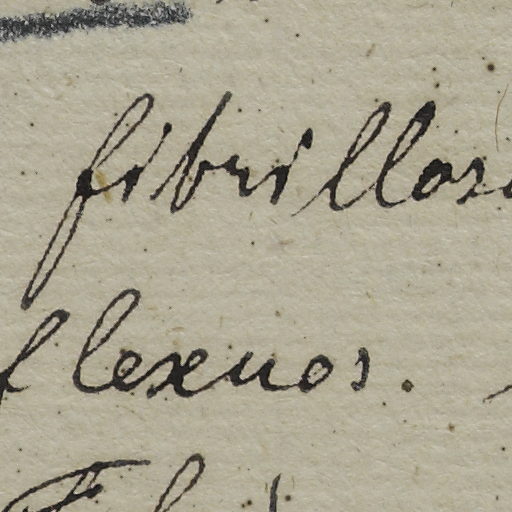 fibrillos
flexuos.